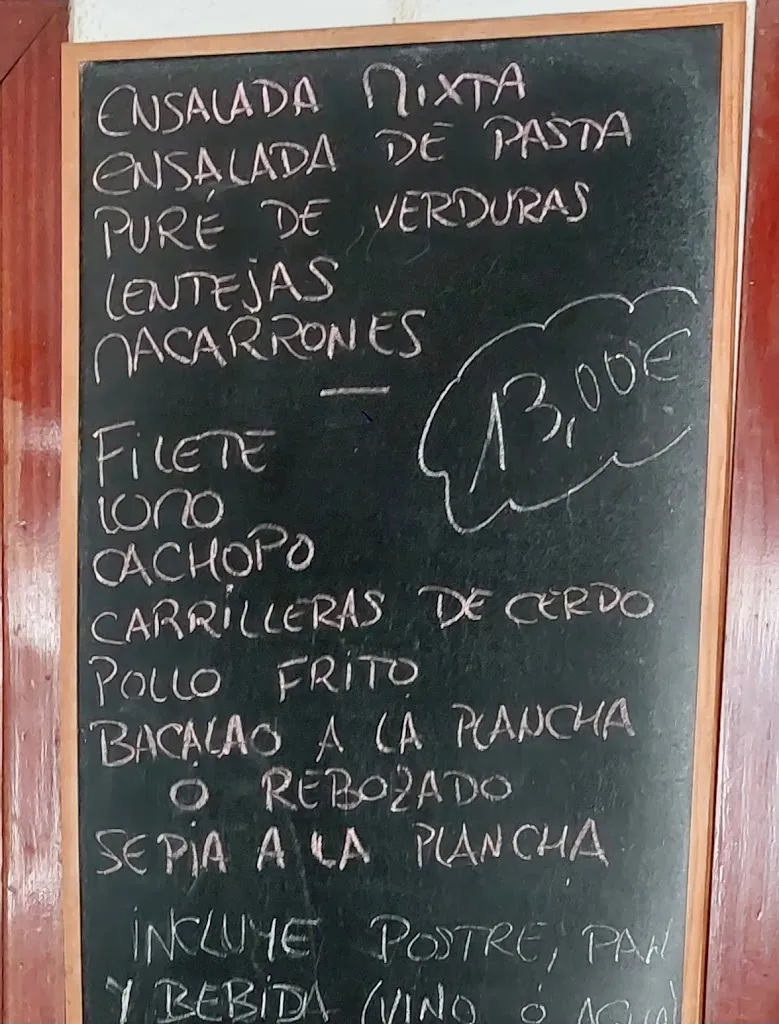 ENSALADA MIXTA
ENSALADA DE PASTA
PURÉ DE VERDURAS
LENTEJAS
MACARRONES
13,00€
FILETE
LOMO
CACHOPO
CARRILLERAS DE CERDO
POLLO FRITO
BACALAO A LA PLANCHA
O REBOZADO
SEPIA A LA PLANCHA
INCLUYE POSTRE, PAN
Y BEBIDA (VINO O AGUA)